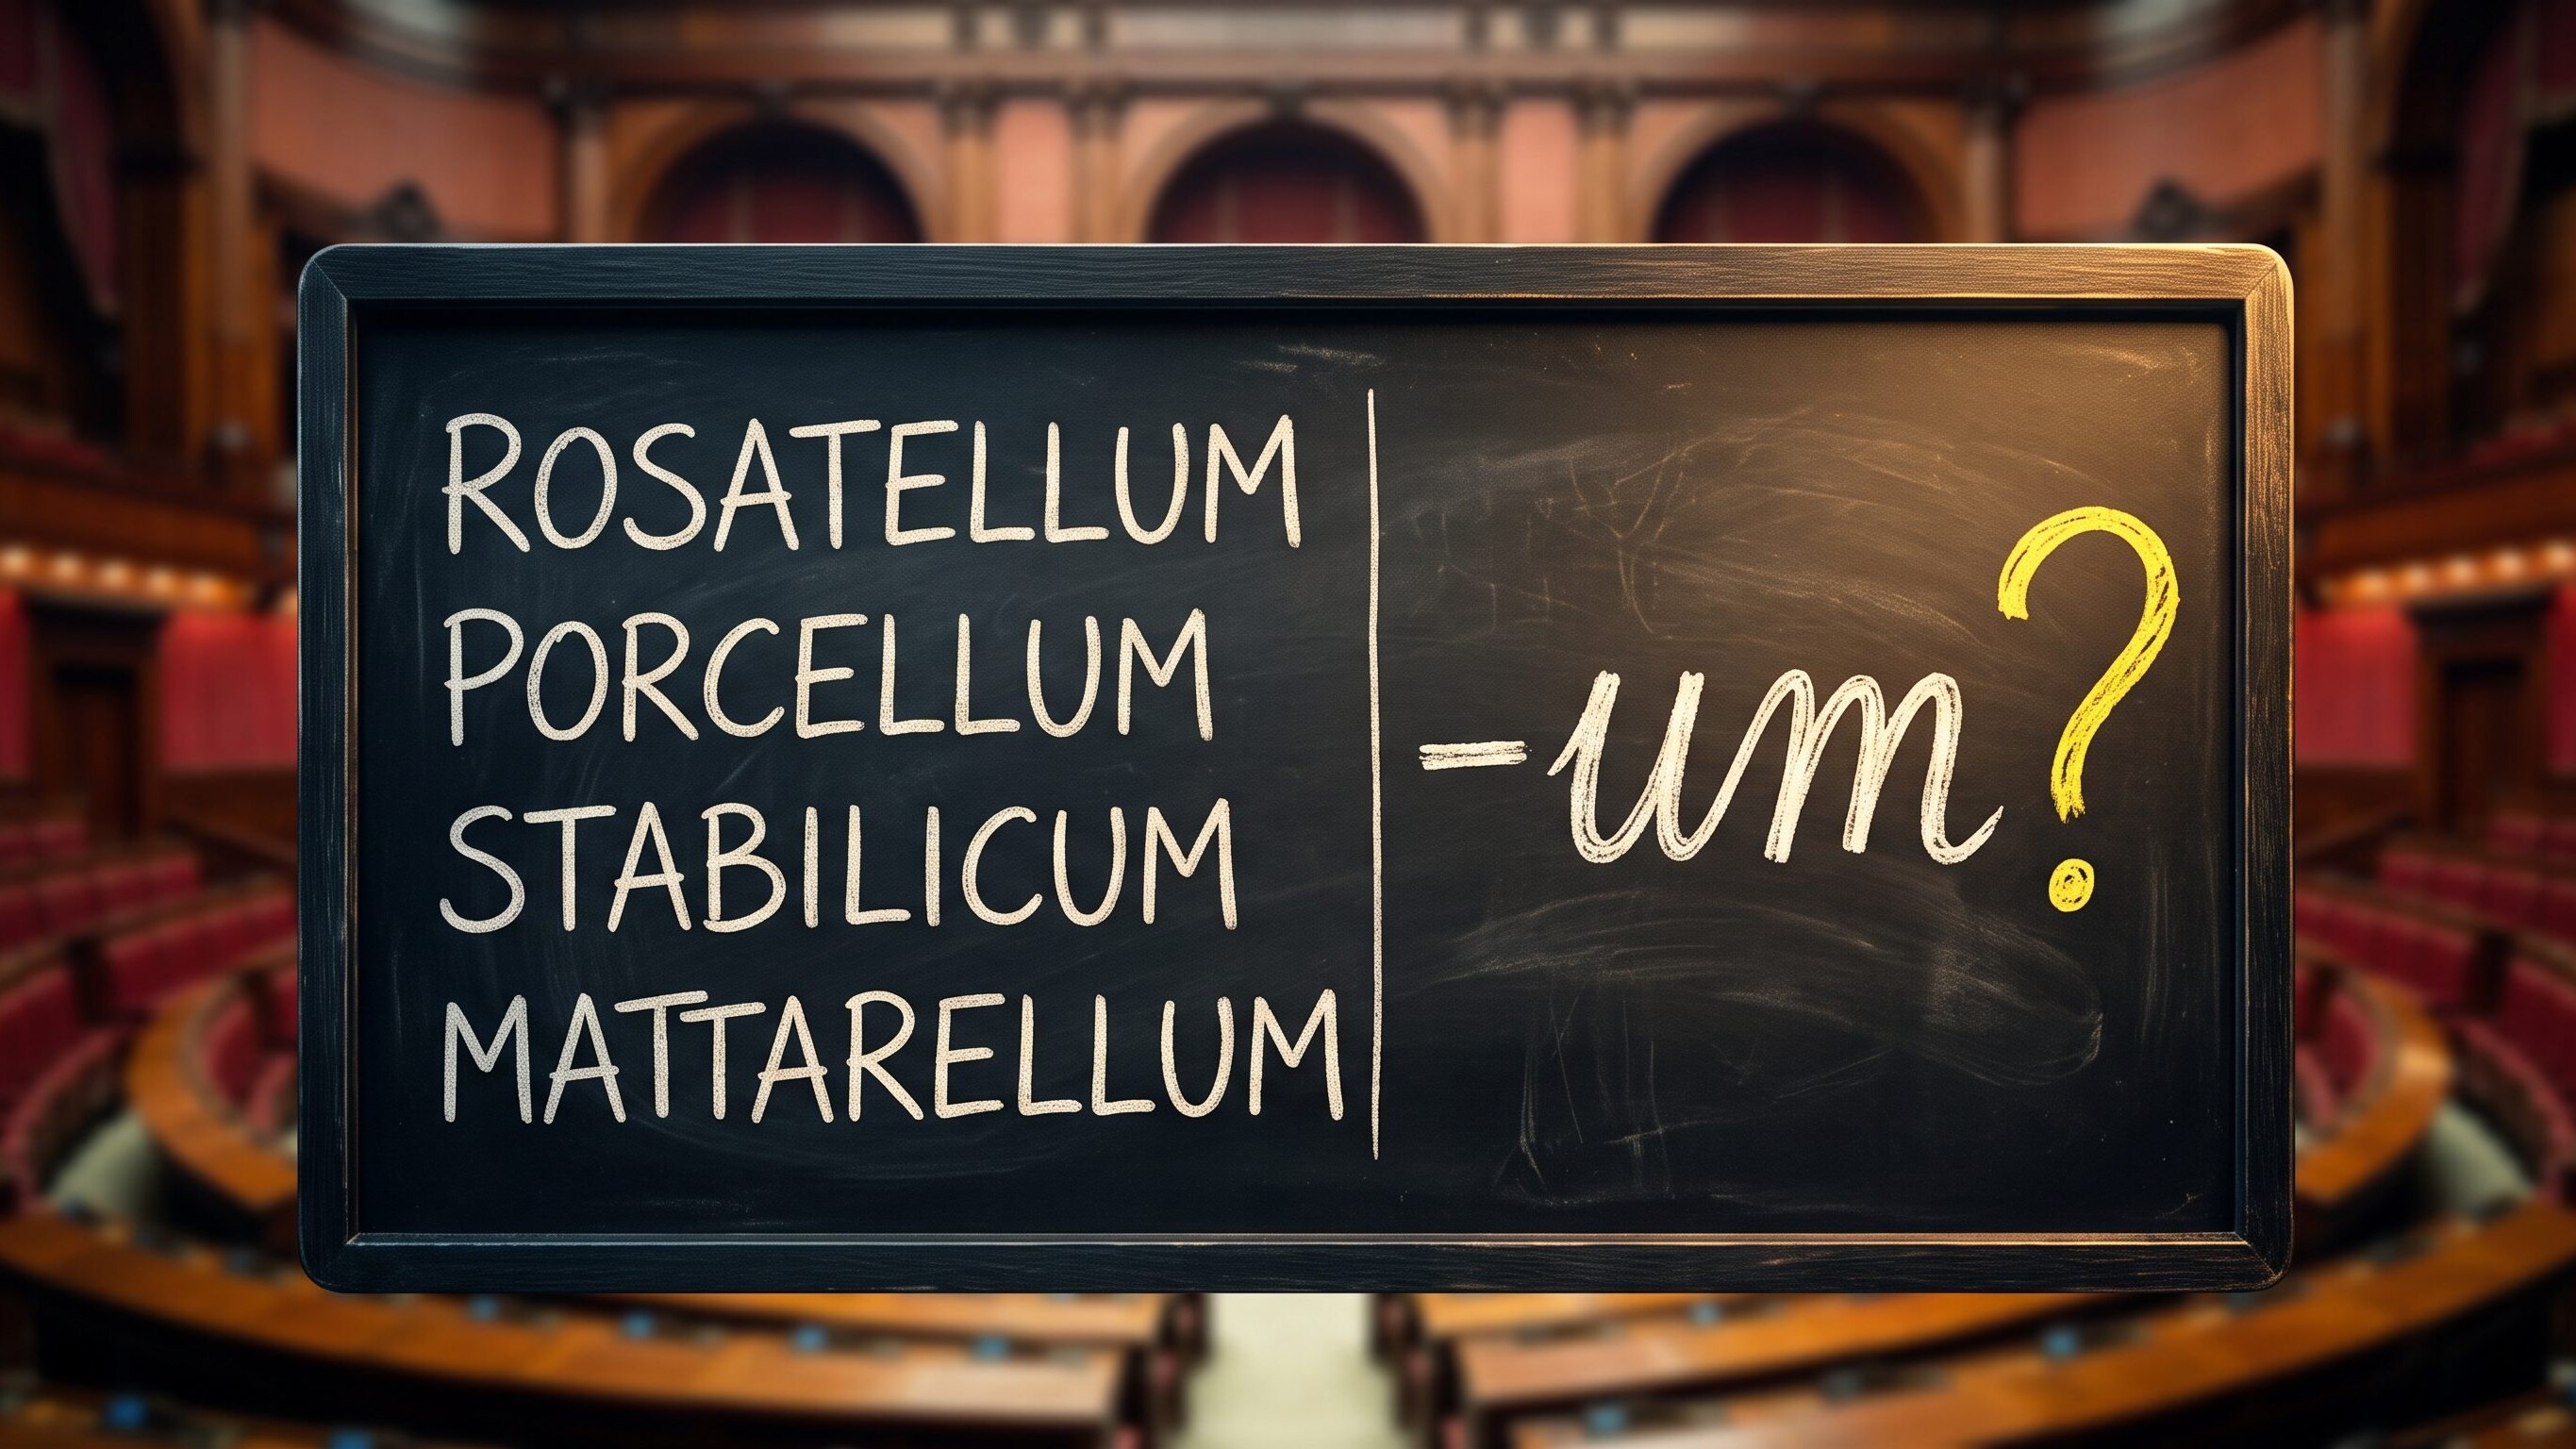 ROSATELLUM
PORCELLUM
STABILICUM
MATTARELLUM
-um?